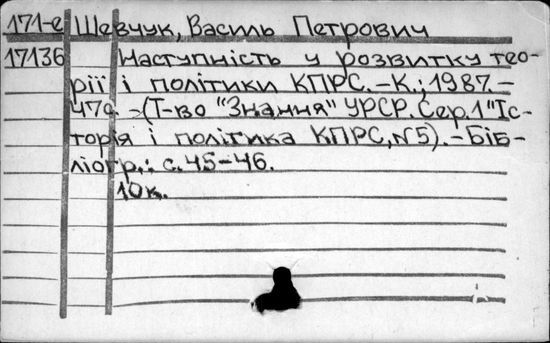 171-е Шевчук, Василь Петрович
17136 Наступність у розвитку тео-
рії і політики КПРС.-К.; 1987.-
47с. -(Т-во "Знання" УРСР. Сер.1 "Іс-
торія і політика КПРС, №5).-Біб-
ліогр.: с.45-46.
10к.